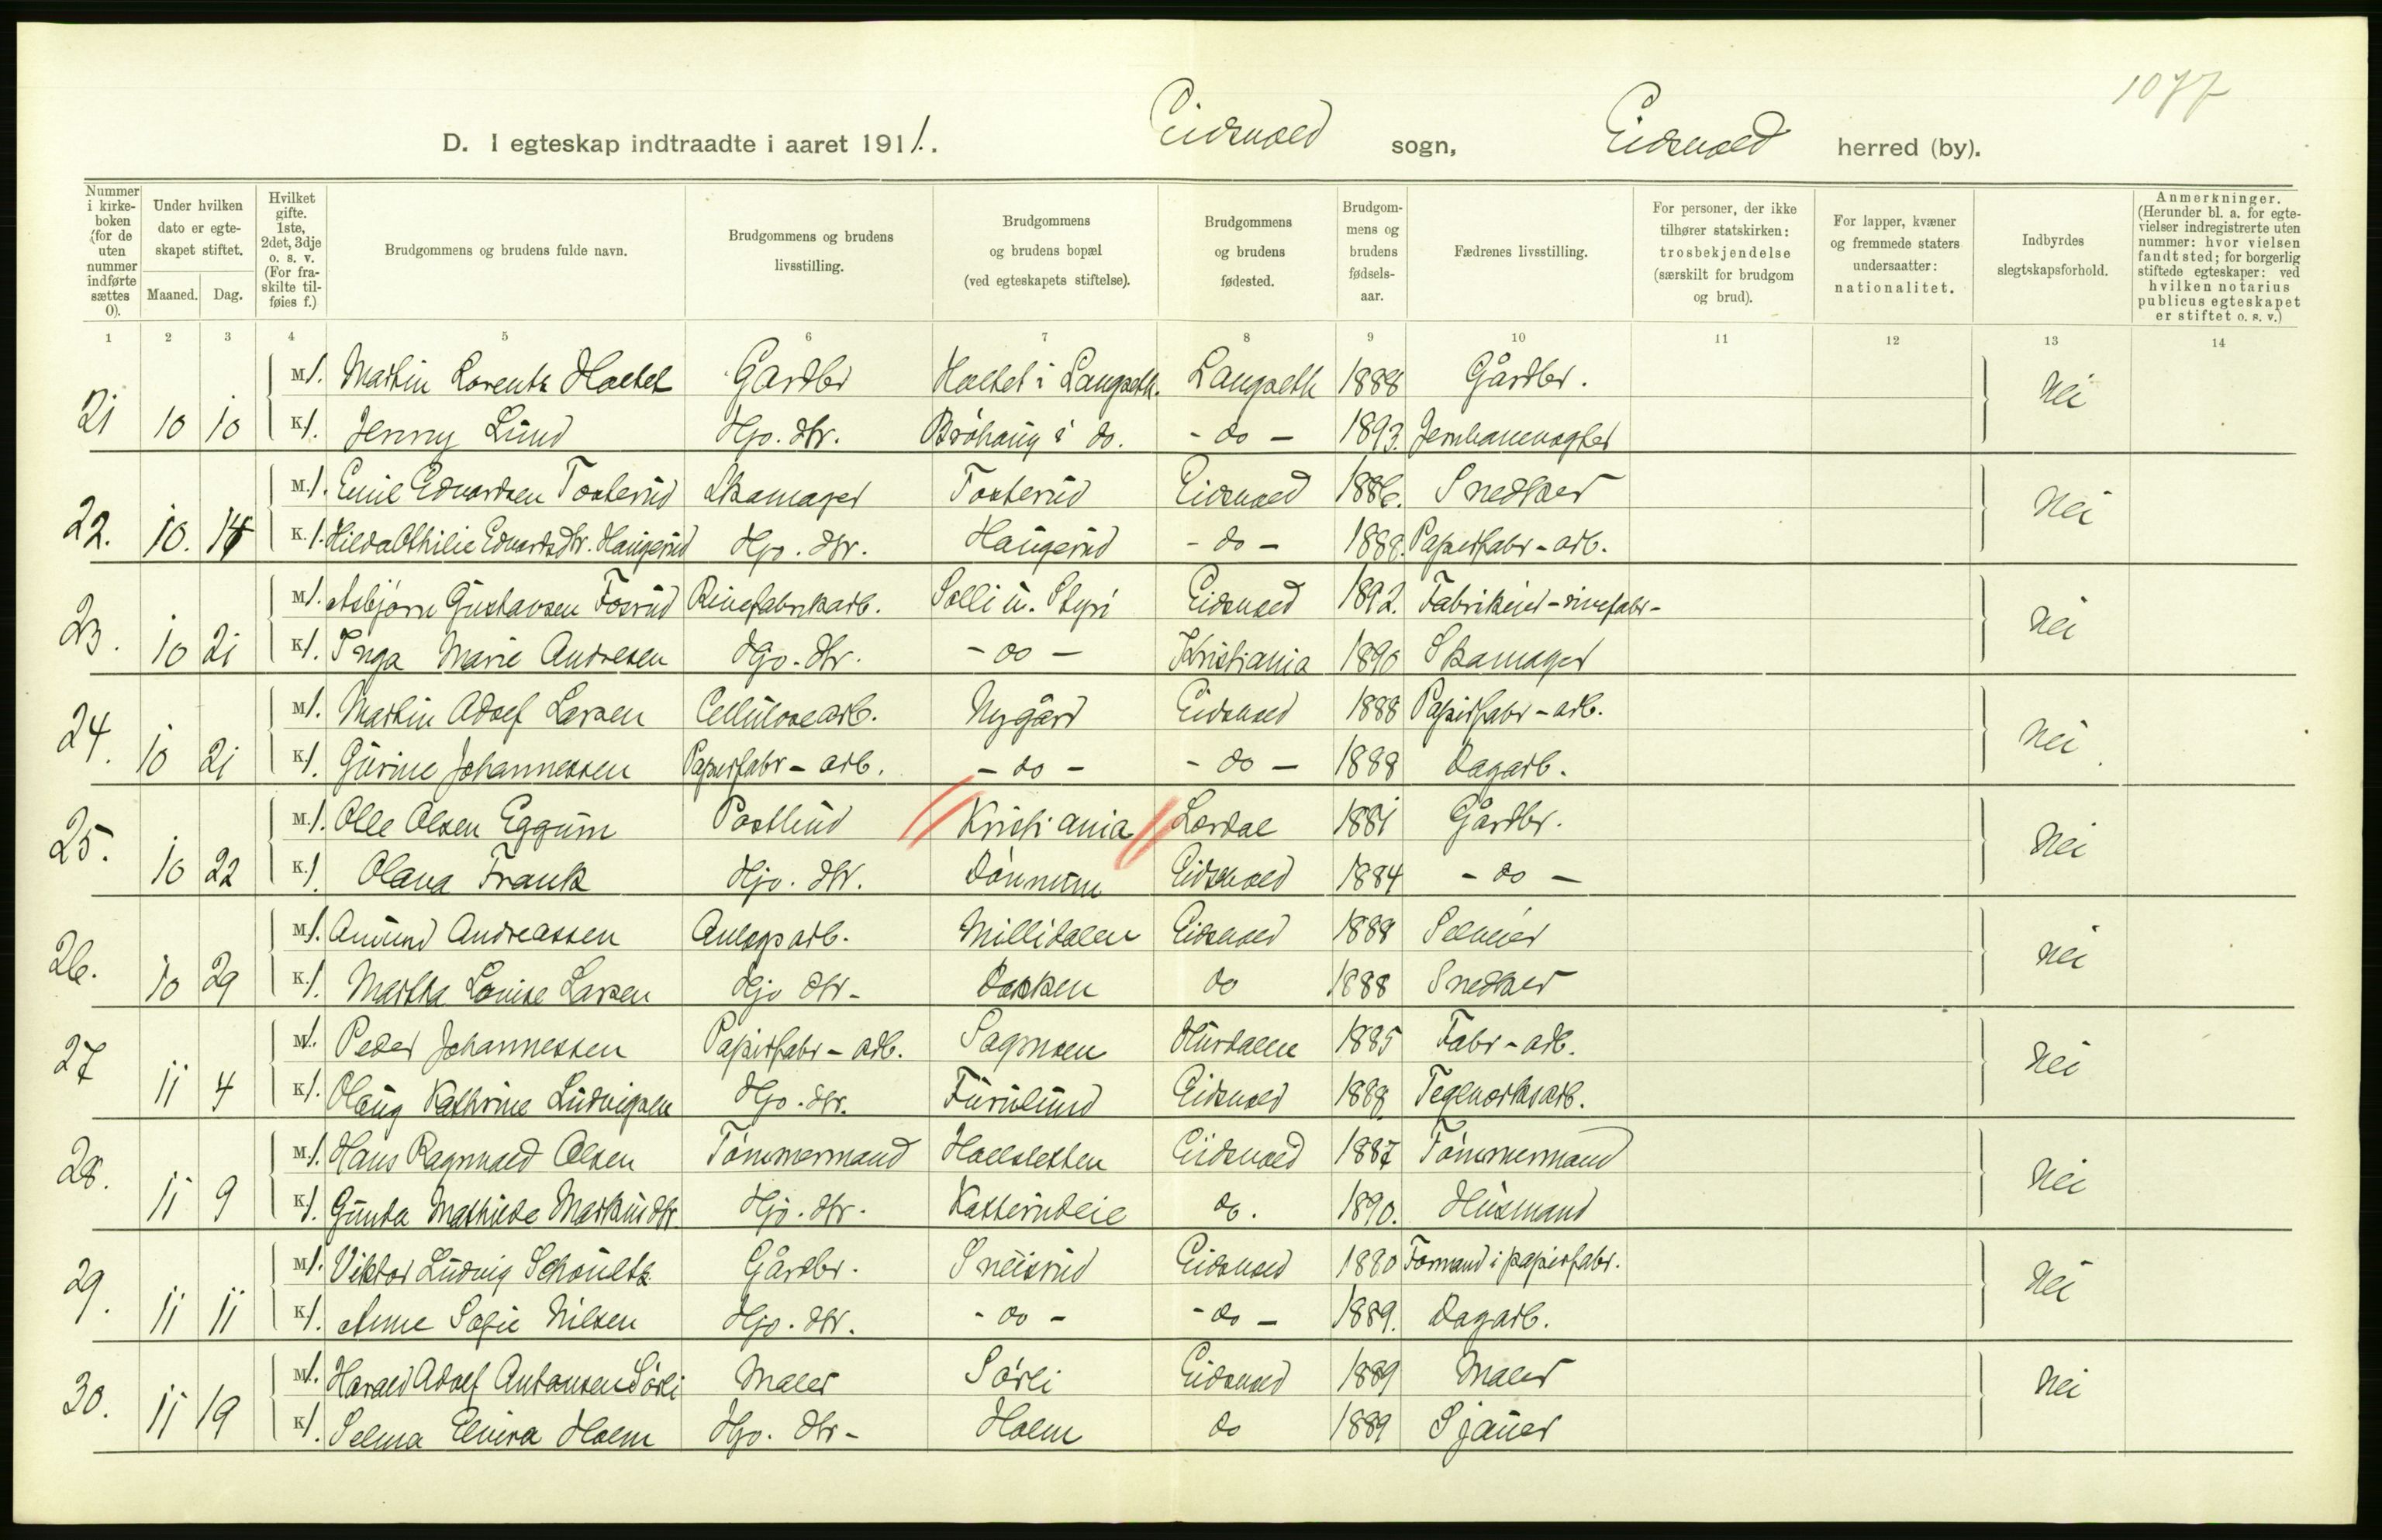 1077
D. I egteskap indtraadte i aaret 1911. Eidsvold sogn, Eidsvold herred (by).
Nummer i kirkeboken (for de uten nummer indførte sættes 0).
Under hvilken dato er egteskapet stiftet.
Maaned. Dag.
Hvilket gifte. 1ste, 2det, 3dje o. s. v. (For fraskilte tilføies f.)
Brudgommens og brudens fulde navn.
Brudgommens og brudens livsstilling.
Brudgommens og brudens bopæl (ved egteskapets stiftelse).
Brudgommens og brudens fødested.
Brudgommens og brudens fødselsaar.
Fædrenes livsstilling.
For personer, der ikke tilhører statskirken: trosbekjendelse (særskilt for brudgom og brud).
For lapper, kvæner og fremmede staters undersaatter: nationalitet.
Indbyrdes slegtskapsforhold.
Anmerkninger. (Herunder bl. a. for egtevielser indregistrerte uten nummer: hvor vielsen fandt sted; for borgerlig stiftede egteskaper: ved hvilken notarius publicus egteskapet er stiftet o. s. v.)
1 2 3 4 5 6 7 8 9 10 11 12 13 14
M 1. Martin Lorentz Holtet Gardbr Holtet i Langseth. Langseth 1888 Gårdbr. Nei
21 10 10 K 1. Jenny Lund Hjo. dtr. Bröhaug i do. - do - 1893. Jernbanevogter
M. 1. Emil Edvardsen Tosterud Skomager Tosterud Eidsvold 1886. Snedker Nei
22. 10. 14 K. 1. Hilda Othilie Edvardsdtr. Haugerud Hjo. dtr. Haugerud - do - 1888. Papirfabr - arb.
M 1. Asbjörn Gustavsen Fosrud Rivefabrikarb. Solli u. Styri Eidsvold 1892. Fabrikeier - rivefabr - Nei
23. 10 21 K 1. Inga Marie Andresen Hjo. dtr. - do - Kristiania 1890 Skomager
M 1. Martin Adolf Larsen Cellulosearb. Nygård Eidsvold 1888 Papirfabr - arb. Nei
24. 10 21 K 1. Gurine Johannessen Papirfabr - arb. - do - - do - 1888 Dagarb.
M. 1. Olle Olsen Eggum Postbud Kristiania Lærdal 1881 Gårdbr. Nei
25. 10 22 K. 1. Olava Frank Hjo. dtr. Dönnum Eidsvold 1884 - do -
M 1. Amund Andreassen Anlegsarb. Millidalen Eidsvold 1888 Selveier Nei
26. 10 29 K. 1. Martha Louise Larsen Hjo dtr - Dokken do 1888 Snedker
M 1. Peder Johannessen Papirfabr - arb. Sagmoen Hurdalen 1885 Fabr - arb. Nei
27 11 4 K 1. Olaug Kathrine Ludvigsen Hjo. dtr. Furulund Eidsvold 1888 Teglverksarb.
M 1. Hans Ragnvald Olsen Tömmermand Hollsletten Eidsvold 1887 Tömmermand Nei
28. 11 9 K 1. Gunda Mathilde Markusdtr. Hjo. dtr. Katterudeie do. 1890. Husmand
M 1. Viktor Ludvig Schoultz Gårdbr. Sneisrud Eidsvold 1880 Formand i papirfabr. Nei
29. 11 11 K 1. Anne Sofie Nilsen Hjo. dtr. - do - - do - 1889. Dagarb.
M 1. Harald Adolf Antonsen Sörli Maler Sörli Eidsvold 1889 Maler Nei
30. 11 19 K 1. Selma Elvira Holm Hjo. dtr - Holm do 1889 Sjauer